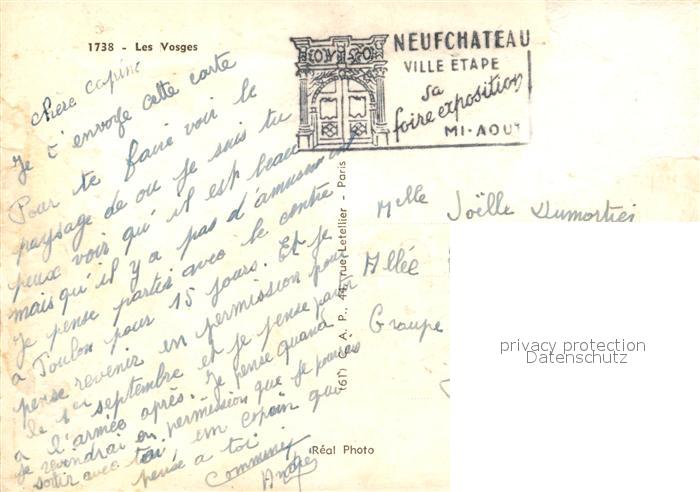 1738 - Les Vosges
NEUFCHATEAU
VILLE ETAPE
sa
foire exposition
MI-AOUT
chere copine
Je t'envoye cette carte
Pour te faire voir le
paysage de ou je suis tu
peux voir qu'il est beau
mais qu'il y a pas d'amusement
Je pense partir avec le centre
a Toulon pour 15 jours. Et je
pense revenir en permission pour
le 1er septembre et je pense partir
a l'armée après. Je pense quand
je reviendrai en permission que je pourrais
sortir avec toi, un copain qui
pense a toi
André
C. A. P., 44, rue Letellier - Paris
Réal Photo
Melle Joëlle Dumortier
Allée
Groupe
privacy protection
Datenschutz